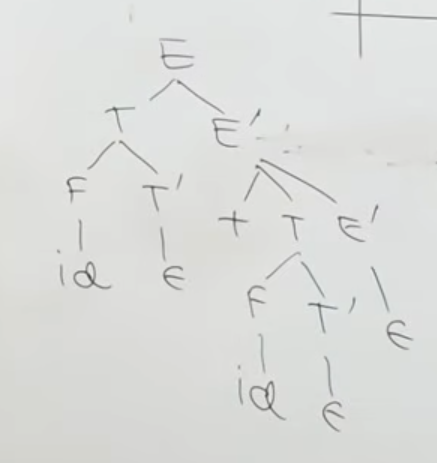 E
T E'
F T' + T E'
id ϵ F T' ϵ
id ϵ